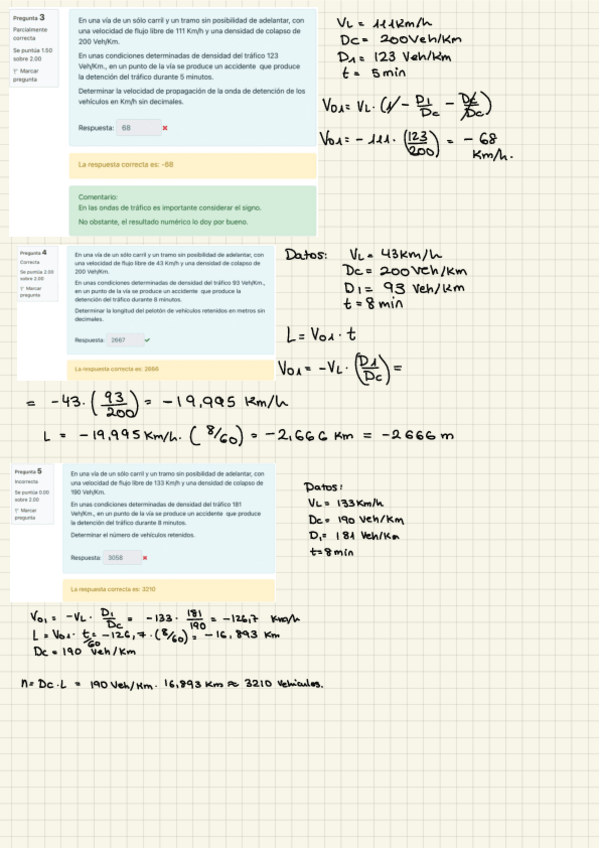 Pregunta 3
Parcialmente correcta
Se puntúa 1.00 sobre 2.00
Marcar pregunta
En una vía de un sólo carril y un tramo sin posibilidad de adelantar, con
una velocidad de flujo libre de 111 Km/h y una densidad de colapso de
200 Veh/Km.
En unas condiciones determinadas de densidad del tráfico 123
Veh/Km., en un punto de la vía se produce un accidente que produce
la detención del tráfico durante 5 minutos.
Determinar la velocidad de propagación de la onda de detención de los
vehículos en Km/h sin decimales.
Respuesta: 68
La respuesta correcta es: -68
Comentario:
En las ondas de tráfico es importante considerar el signo.
No obstante, el resultado numérico lo doy por bueno.
VL = 111km/h
Dc = 200Veh/Km
D1 = 123 Veh/Km
t = 5min
V01 = VL · (1 - D1/Dc - Dc/Dc)
V01 = -111 · (123/200) = -68 Km/h.
Pregunta 4
Correcta
Se puntúa 2.00 sobre 2.00
Marcar pregunta
En una vía de un sólo carril y un tramo sin posibilidad de adelantar, con
una velocidad de flujo libre de 43 Km/h y una densidad de colapso de
200 Veh/Km.
En unas condiciones determinadas de densidad del tráfico 93 Veh/Km.,
en un punto de la vía se produce un accidente que produce la
detención del tráfico durante 8 minutos.
Determinar la longitud del pelotón de vehículos retenidos en metros sin
decimales.
Respuesta: 2667
La respuesta correcta es: 2666
Datos: VL = 43km/h
Dc = 200Veh/Km
D1 = 93 Veh/Km
t = 8 min
L = V01 · t
V01 = -VL · (D1/Dc) =
= -43 · (93/200) = -19,995 Km/h
L = -19,995 Km/h. (8/60) = -2,666 Km = -2666 m
Pregunta 5
Incorrecta
Se puntúa 0.00 sobre 2.00
Marcar pregunta
En una vía de un sólo carril y un tramo sin posibilidad de adelantar, con
una velocidad de flujo libre de 133 Km/h y una densidad de colapso de
190 Veh/Km.
En unas condiciones determinadas de densidad del tráfico 181
Veh/Km., en un punto de la vía se produce un accidente que produce
la detención del tráfico durante 8 minutos.
Determinar el número de vehículos retenidos.
Respuesta: 3058
La respuesta correcta es: 3210
Datos:
VL = 133Km/h
Dc = 190 Veh/Km
D1 = 181 Veh/Km
t = 8 min
V01 = -VL · D1/Dc = -133 · 181/190 = -126,7 Km/h
L = V01 · t/60 = -126,7 · (8/60) = -16,893 Km
Dc = 190 Veh/Km
n = Dc · L = 190 Veh/Km · 16,893 Km ≈ 3210 Vehiculos.